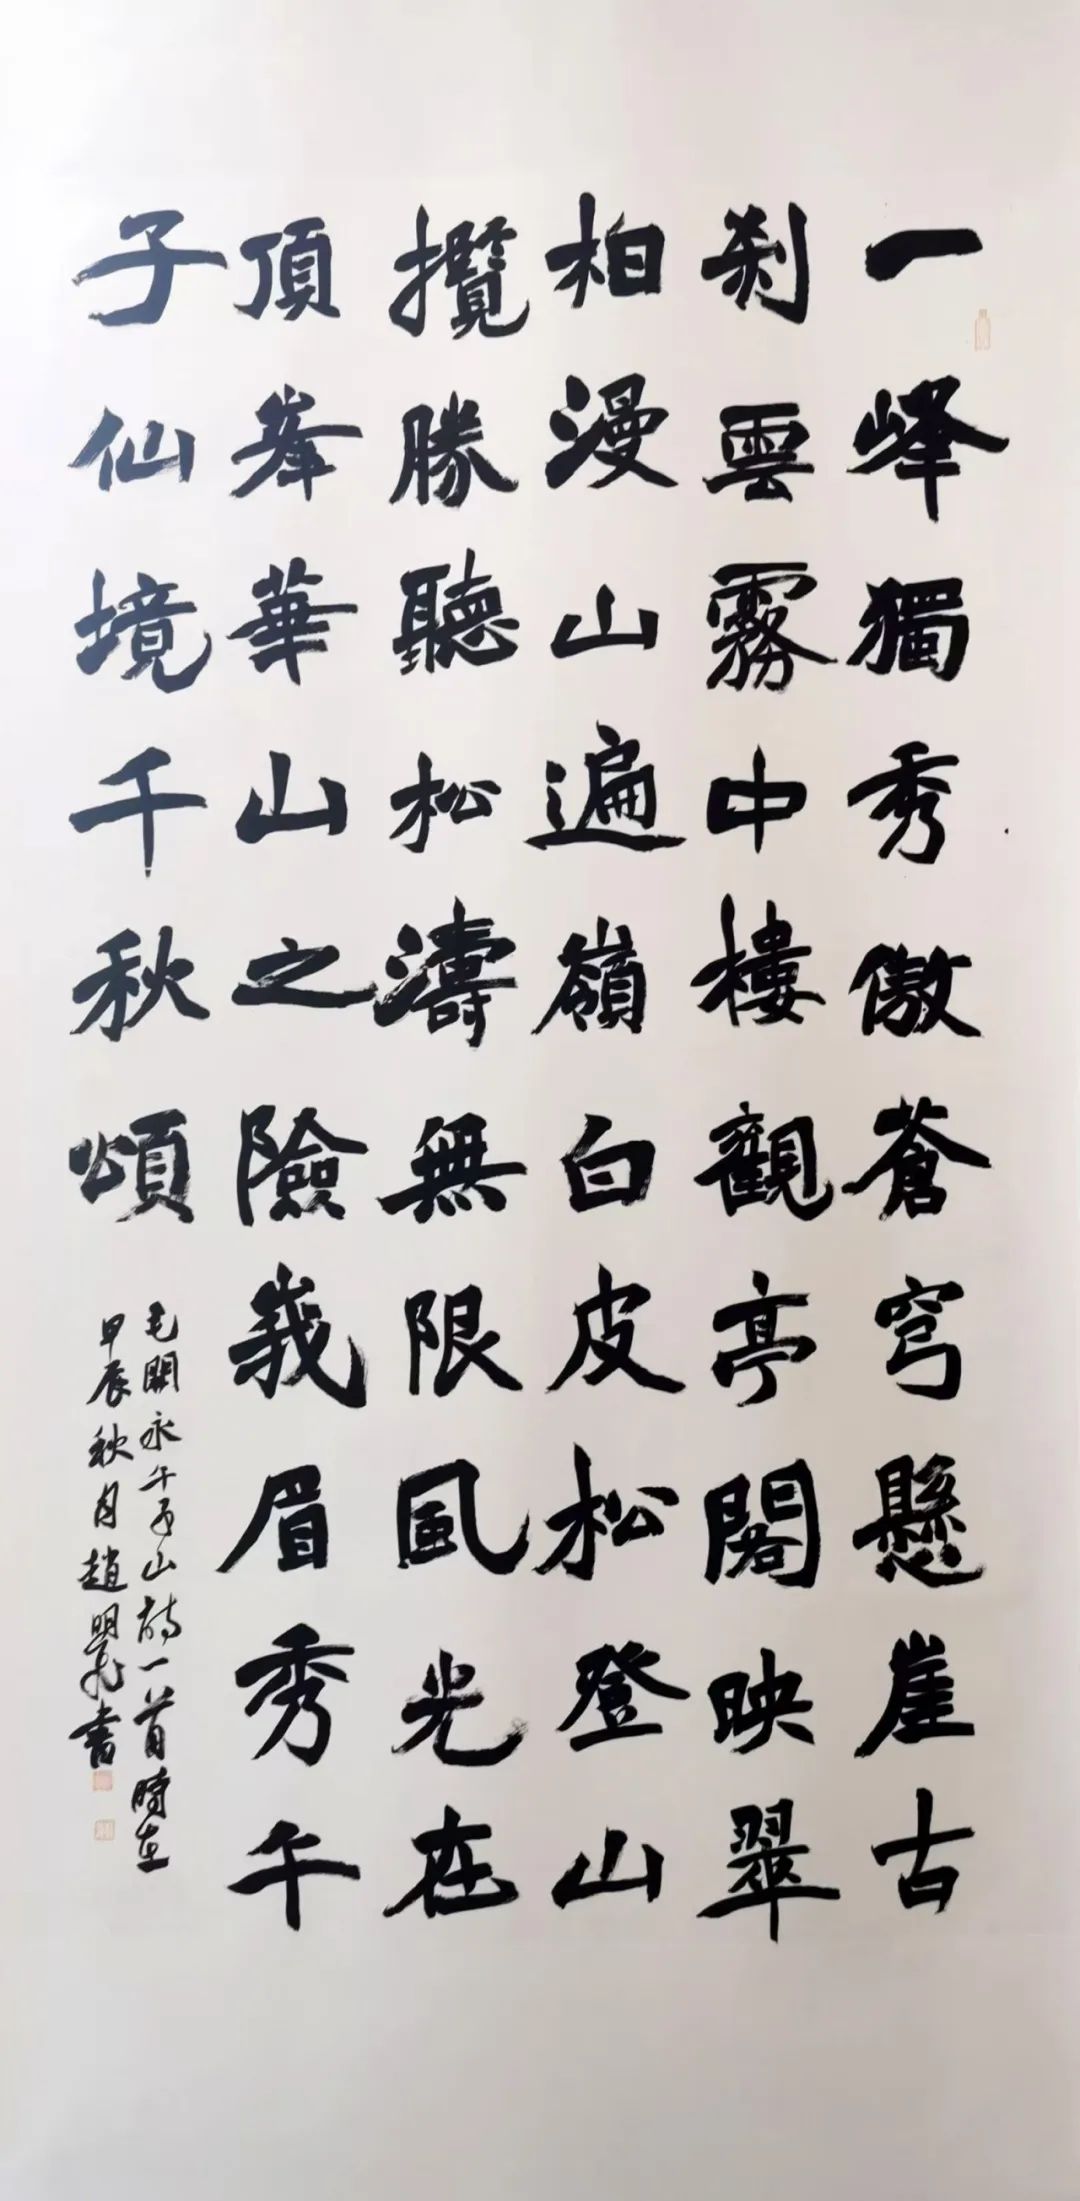 一峰獨秀傲蒼穹懸崖古
刹雲霧中樓觀亭閣映翠
柏漫山遍嶺白皮松登山
攬勝聽松濤無限風光在
頂峯華山之險峩眉秀午
子仙境千秋頌
毛開永午子山詩一首時在
甲辰秋月趙明 書